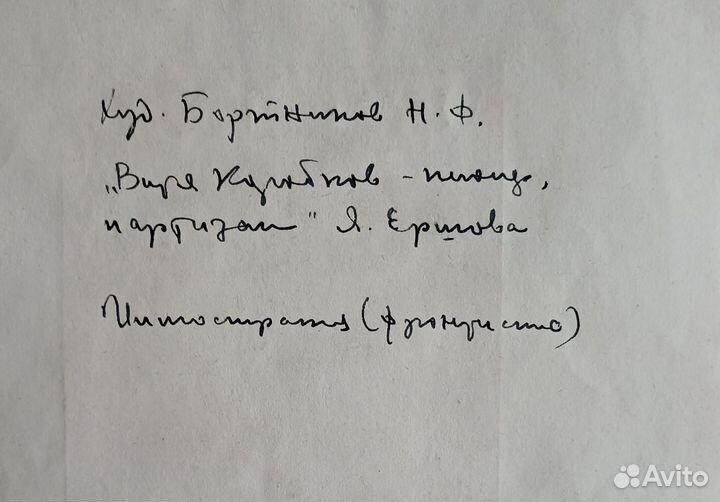 Худ. Бортников Н. Ф.
„Витя Коробков – пионер,
партизан" Я. Ершова
Иллюстрация (фронтиспис)
Avito